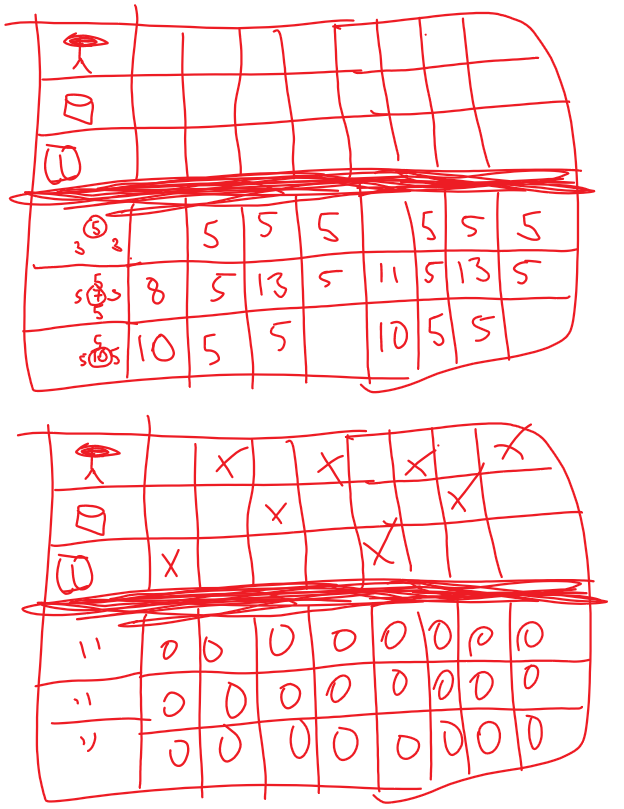 5 5 5 5 5 5 5
3 3
5
5 3 8 5 13 5 11 5 13 5
5
5
5 10 5 10 5 5 10 5 5
X X X X
X X
X X
0 0 0 0 0 0 0 0
0 0 0 0 0 0 0 0
0 0 0 0 0 0 0 0